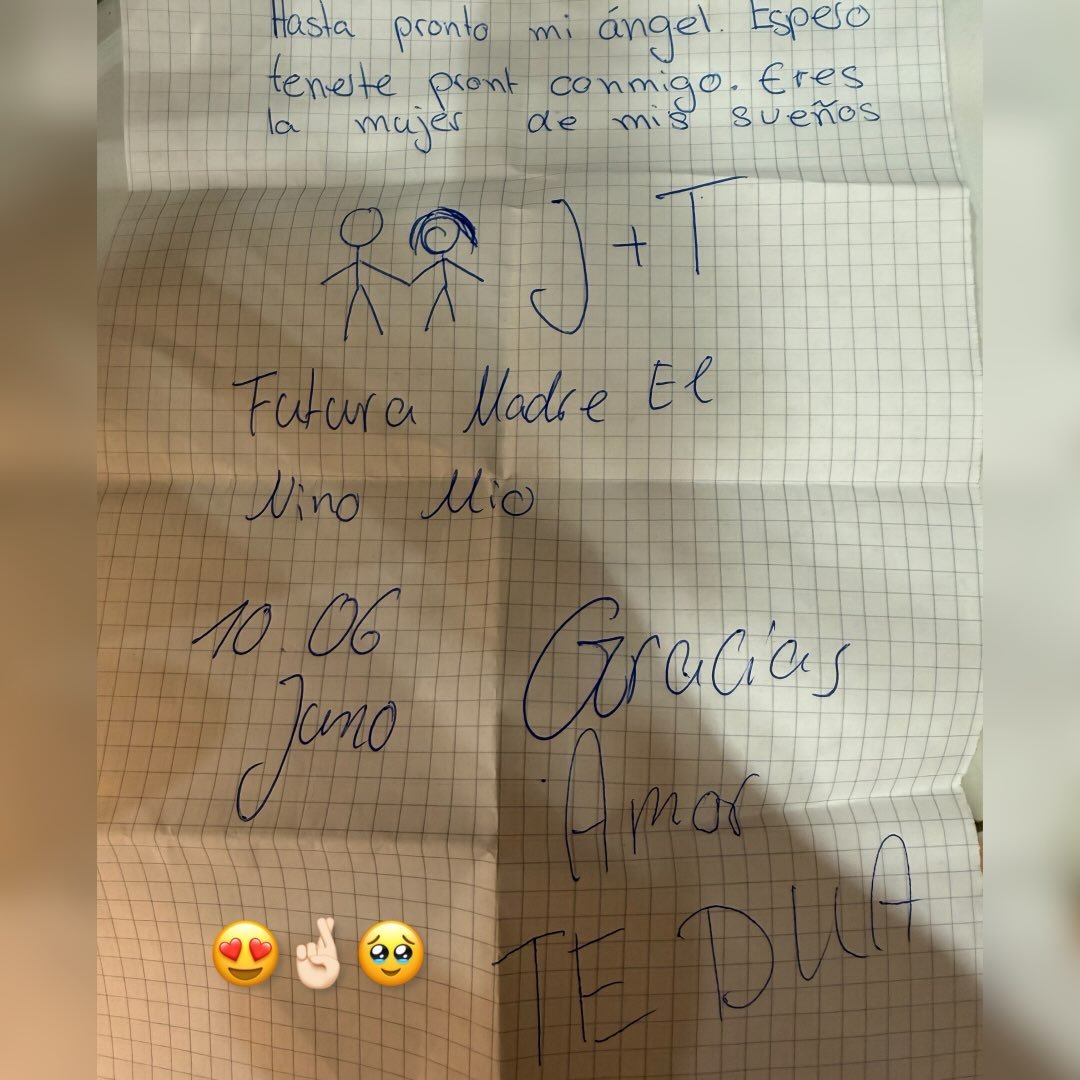 Hasta pronto mi ángel. Espeso
teneste pront conmigo. Eres
la mujer de mis sueños
J + T
Futura Madre El
Nino Mio
10.06
Jano
Gracias
Amor
TE DUA